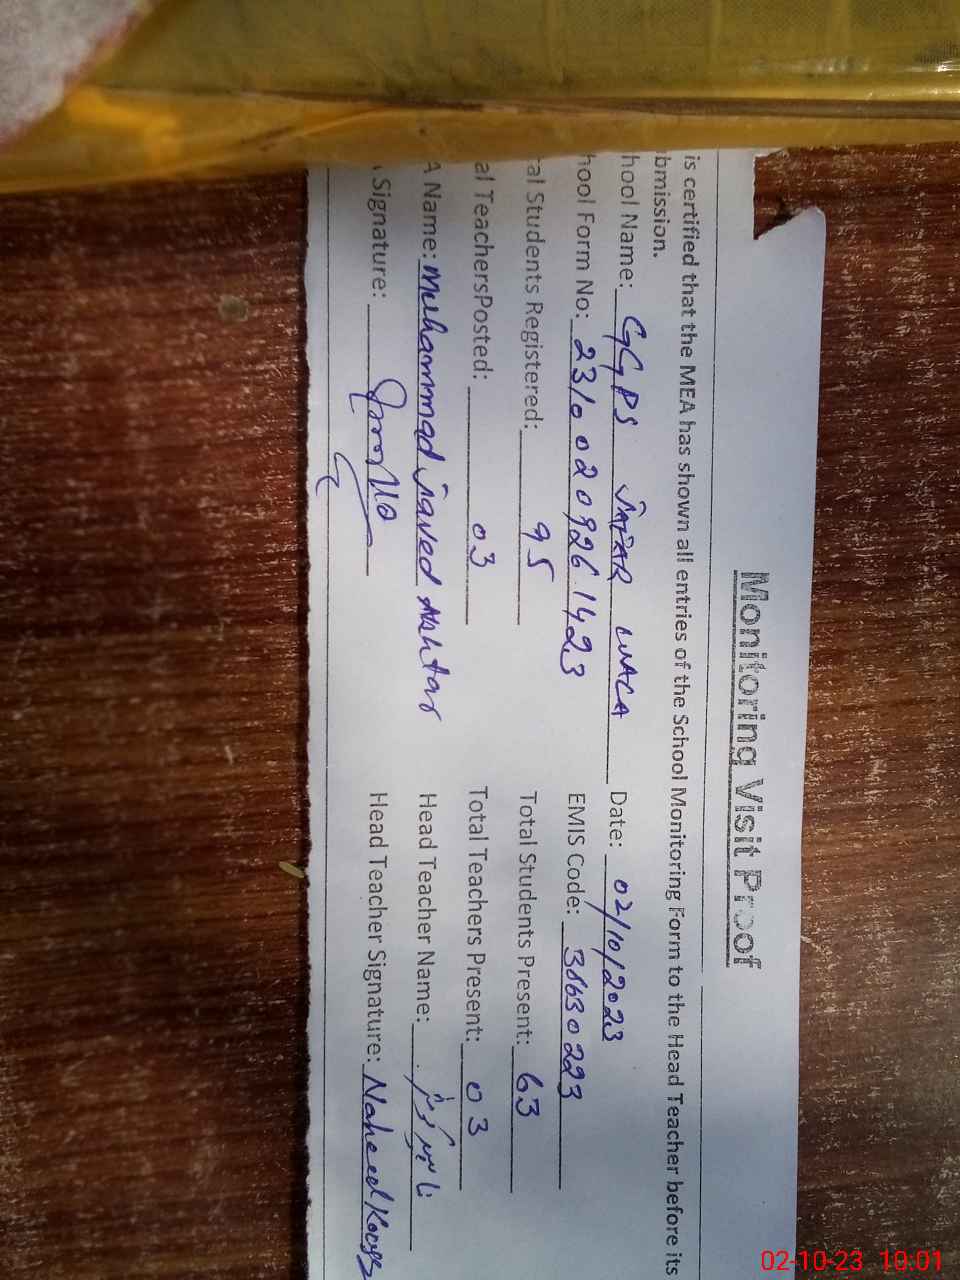 Monitoring Visit Proof
is certified that the MEA has shown all entries of the School Monitoring Form to the Head Teacher before its
bmission.
hool Name: GGPS WACA Date: 02/10/2023
hool Form No: 2310020926 1423 EMIS Code: 38630223
al Students Registered: 95 Total Students Present: 63
al TeachersPosted: 03 Total Teachers Present: 03
A Name: Muhammad Javed Akhtar Head Teacher Name: ناہید کوثر
Signature: Head Teacher Signature: Naheed Kousr
02-10-23 10:01